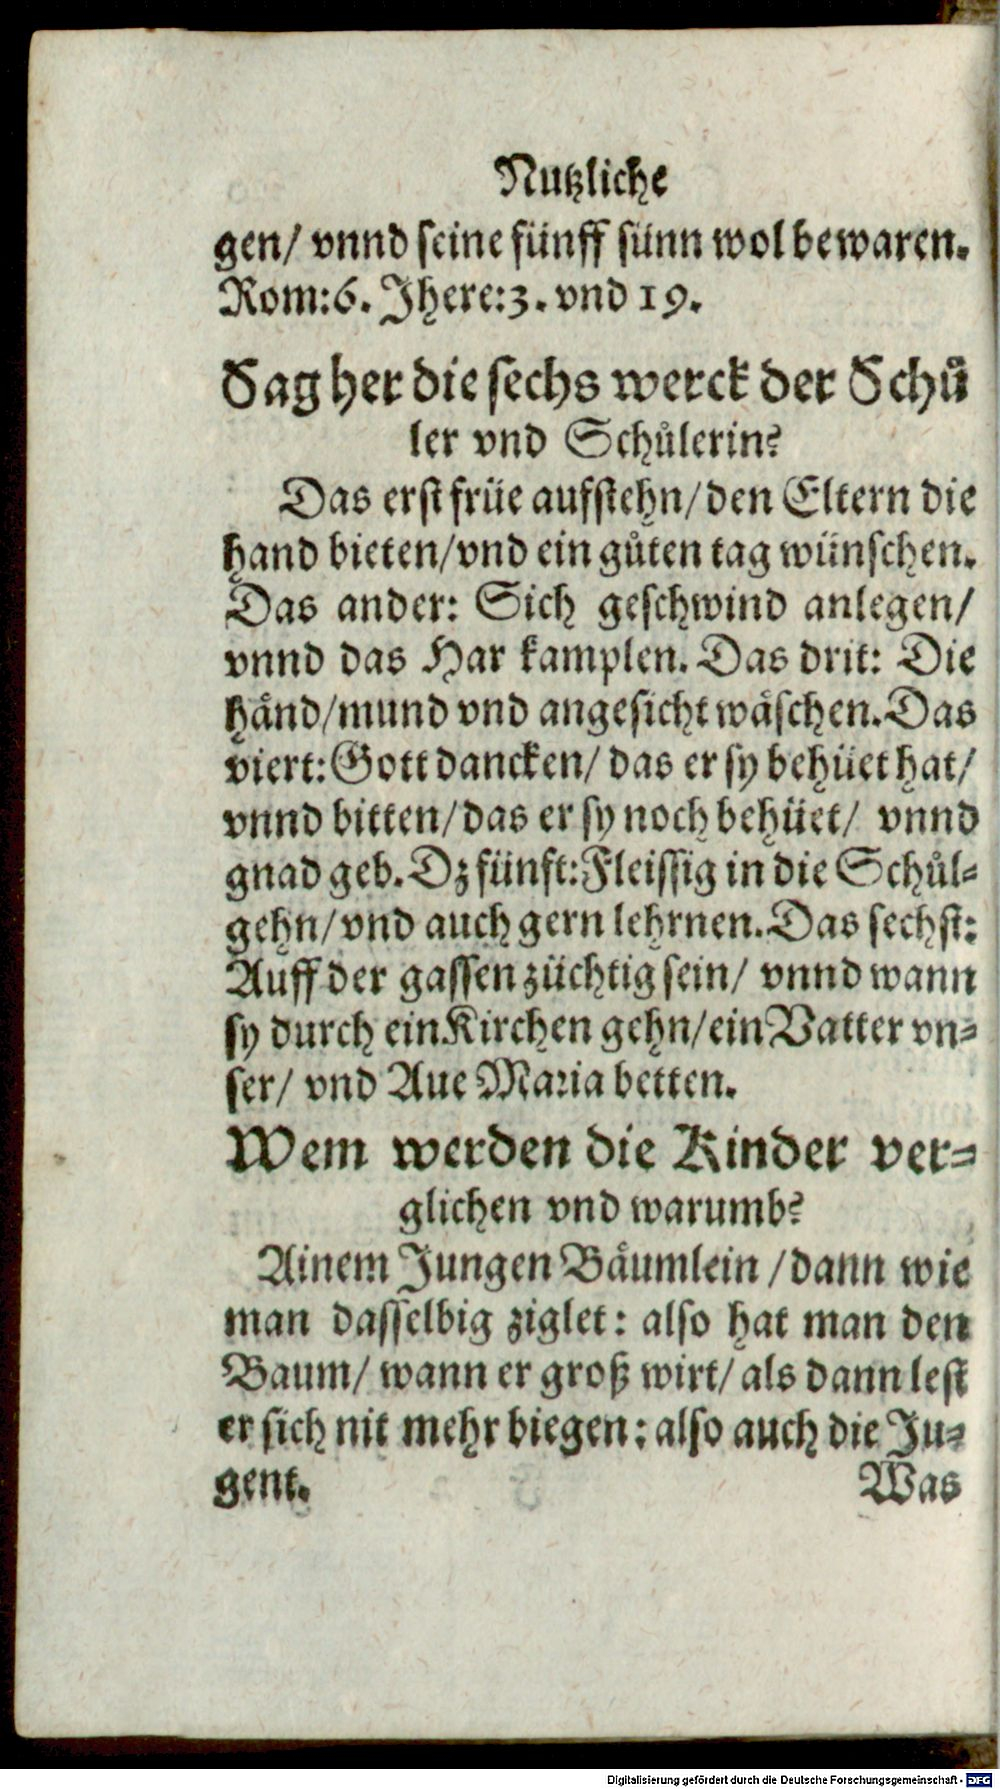 Nutzliche
gen/ vnnd seine fünff sünn wol bewaren.
Rom:6. Jhere:3. vnd 19.
Sag her die sechs werck der Schuͤ
ler vnd Schuͤlerin?
Das erst früe aufstehn/ den Eltern die
hand bieten/ vnd ein guͦten tag wünschen.
Das ander: Sich geschwind anlegen/
vnnd das Har kamplen. Das drit: Die
haͤnd/ mund vnd angesicht waͤschen. Das
viert: Gott dancken/ das er sy behüet hat/
vnnd bitten/ das er sy noch behüet/ vnnd
gnad geb. Dz fünft: Fleissig in die Schuͦl-
gehn/ vnd auch gern lehrnen. Das sechst:
Auff der gassen züchtig sein/ vnnd wann
sy durch ein Kirchen gehn/ ein Vatter vn-
ser/ vnd Aue Maria betten.
Wem werden die Kinder ver-
glichen vnd warumb?
Ainem Jungen Baͤumlein / dann wie
man dasselbig ziglet: also hat man den
Baum/ wann er groß wirt/ als dann lest
er sich nit mehr biegen: also auch die Ju-
gent. Was
Digitalisierung gefördert durch die Deutsche Forschungsgemeinschaft - DFG